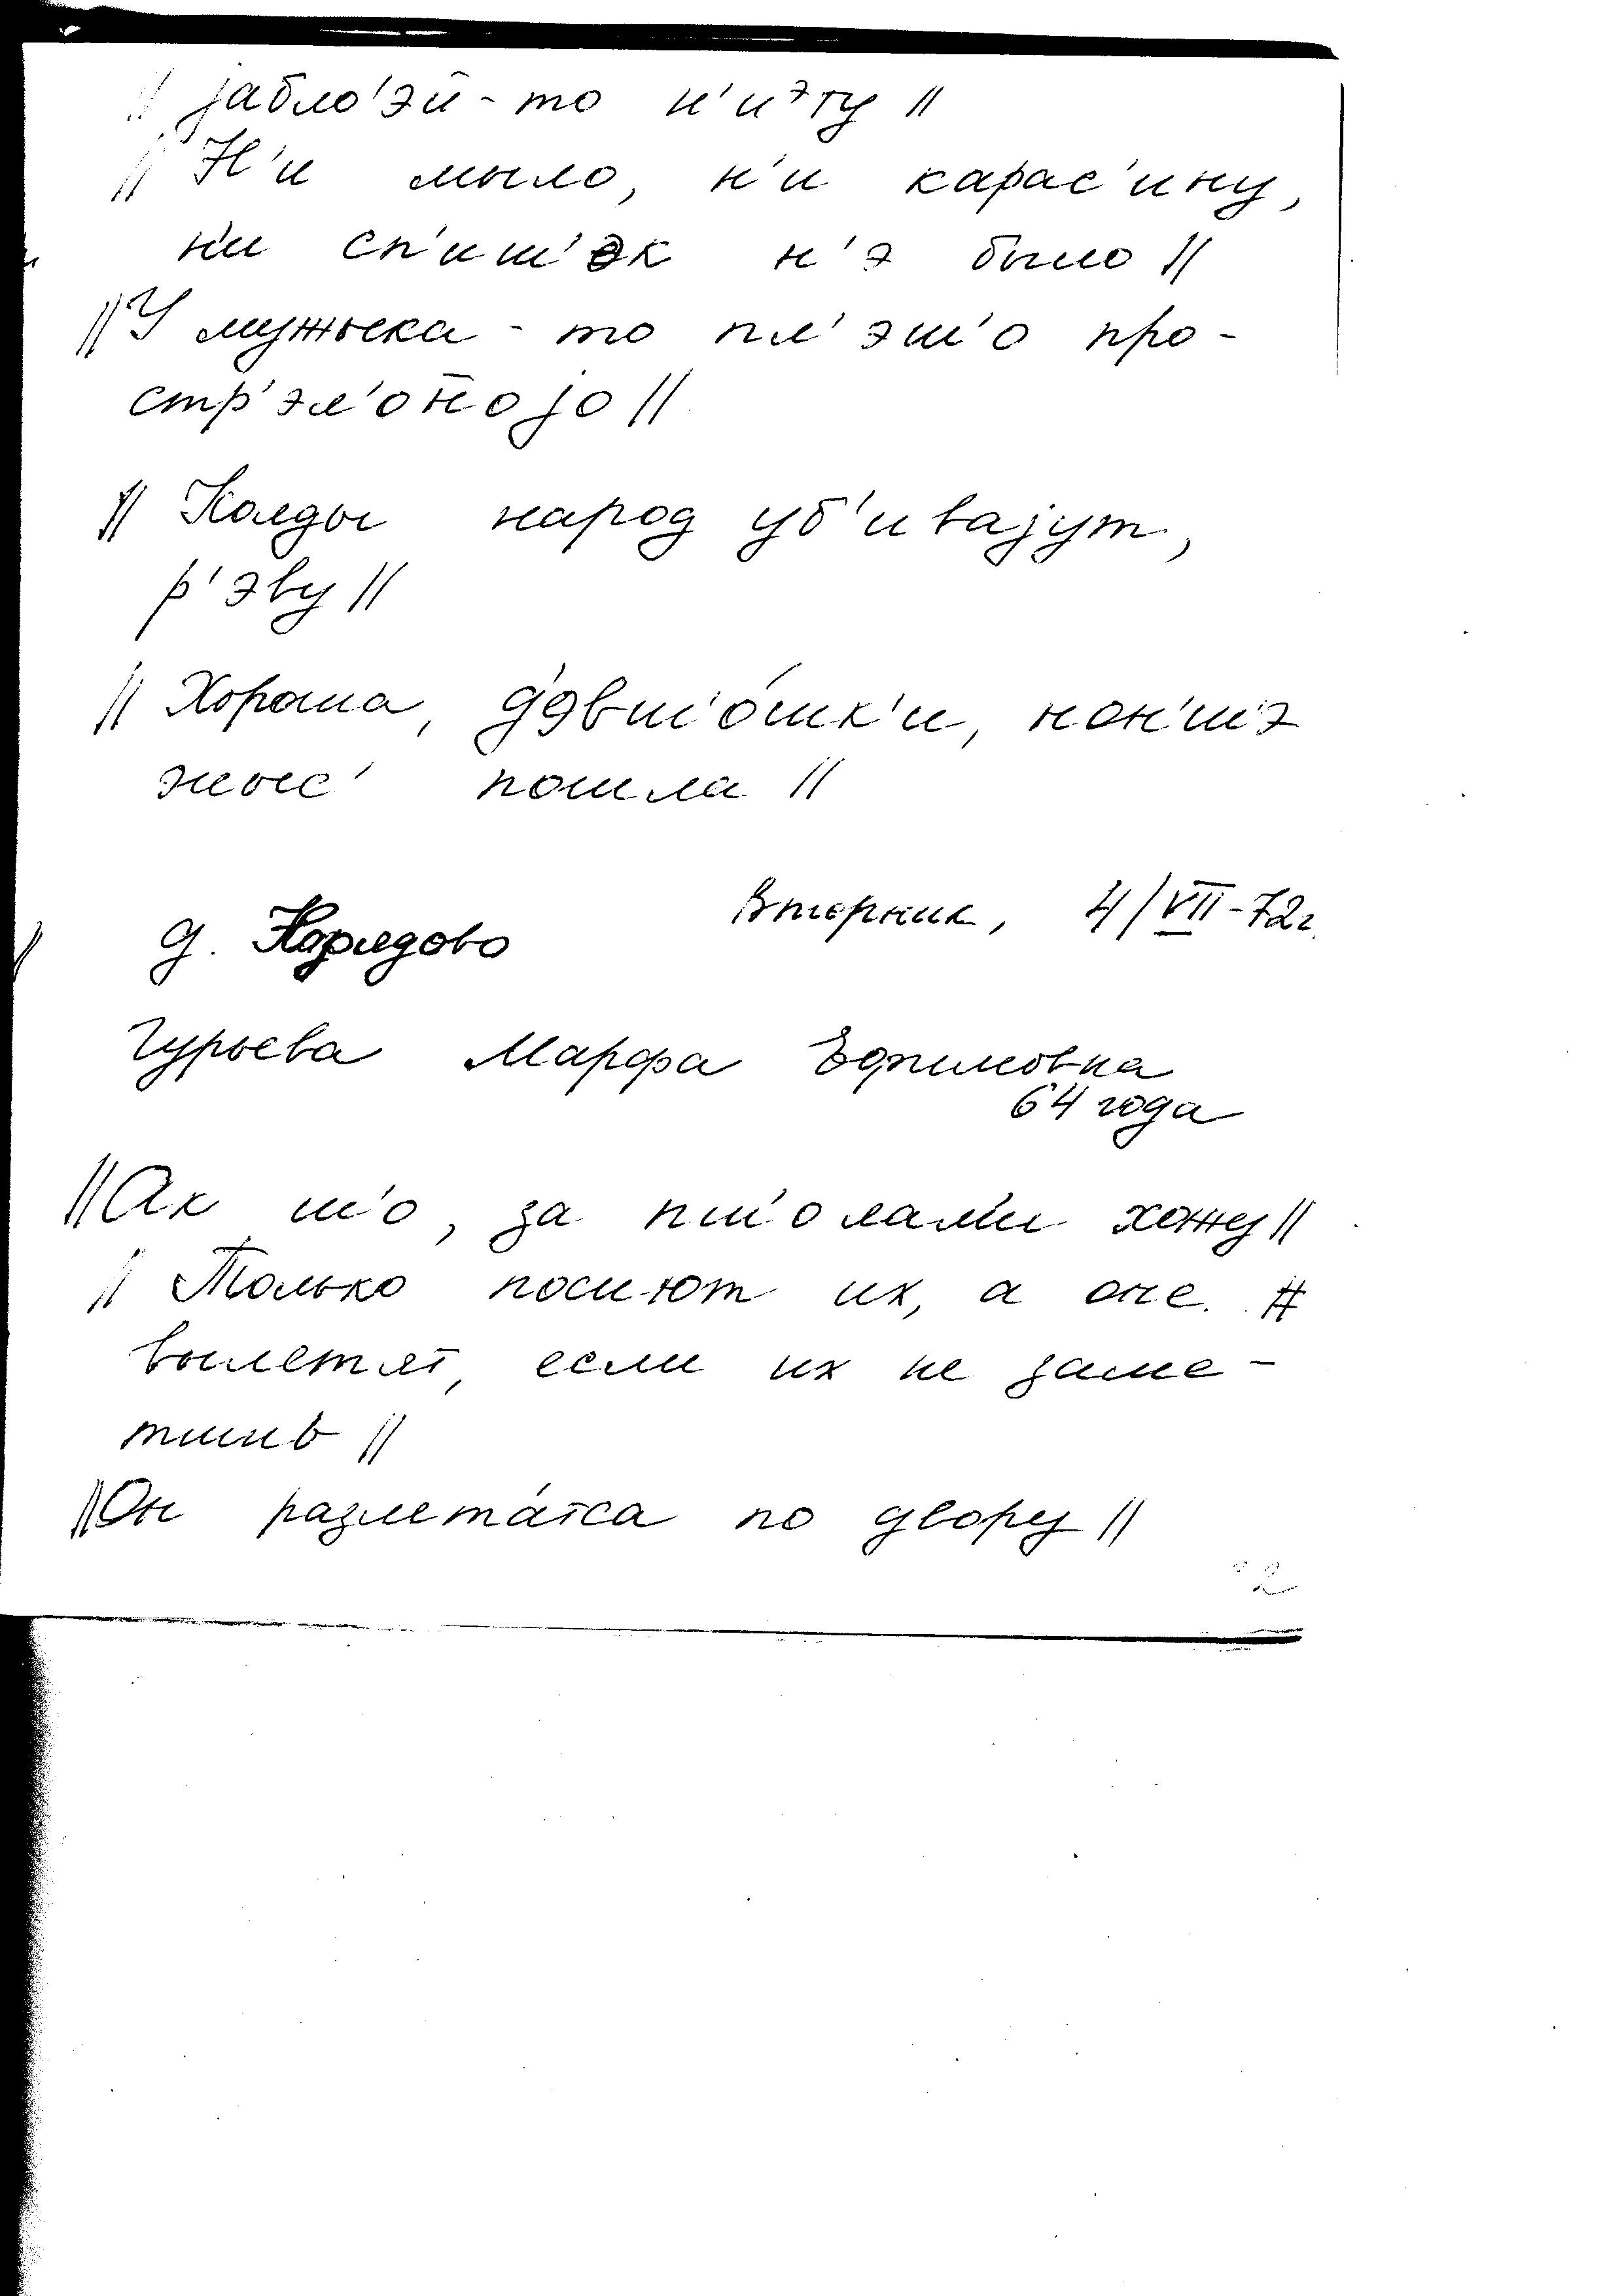 || jабло'эй-то н'иэту ||
|| Н'и мыло, н'и карас'ину,
н'и сп'иш'эк н'э было ||
|| У мужыка-то пл'эш'о про-
стр'эл'о̄нојо ||
|| Колды народ уб'ивајут,
р'эву ||
|| Хороша, д'эвш'о́шк'и, нон'ш'э
жыс' пошла ||
Вторник, 4/VII-72г.
д.
Гурьева Марфа Ефимовна
64 года
|| Ак ш'о, за пш'олам'и хожу ||
|| Только посиют их, а оне
вылетят, если их не заме-
тишь ||
|| Он разлета́тса по двору ||